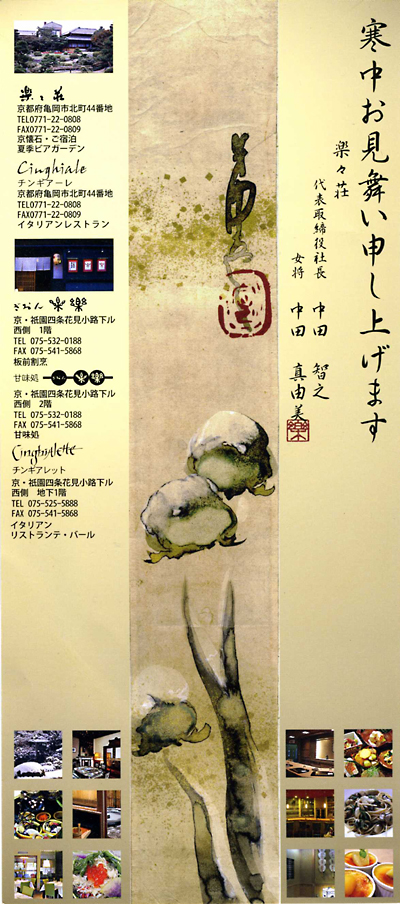 寒中お見舞い申し上げます
楽々荘
代表取締役社長 中田 智之
女将 中田 真由美
樂
樂々荘
京都府亀岡市北町44番地
TEL0771-22-0808
FAX0771-22-0809
京懐石・ご宿泊
夏季ビアガーデン
Cinghiale
チンギアーレ
京都府亀岡市北町44番地
TEL0771-22-0808
FAX0771-22-0809
イタリアンレストラン
ぎおん 楽樂
京・祇園四条花見小路下ル
西側 1階
TEL 075-532-0188
FAX 075-541-5868
板前割烹
甘味処 ぎおん 楽樂
京・祇園四条花見小路下ル
西側 2階
TEL 075-532-0188
FAX 075-541-5868
甘味処
Cinghialette
チンギアレット
京・祇園四条花見小路下ル
西側 地下1階
TEL 075-525-5888
FAX 075-541-5868
イタリアン
リストランテ・バール